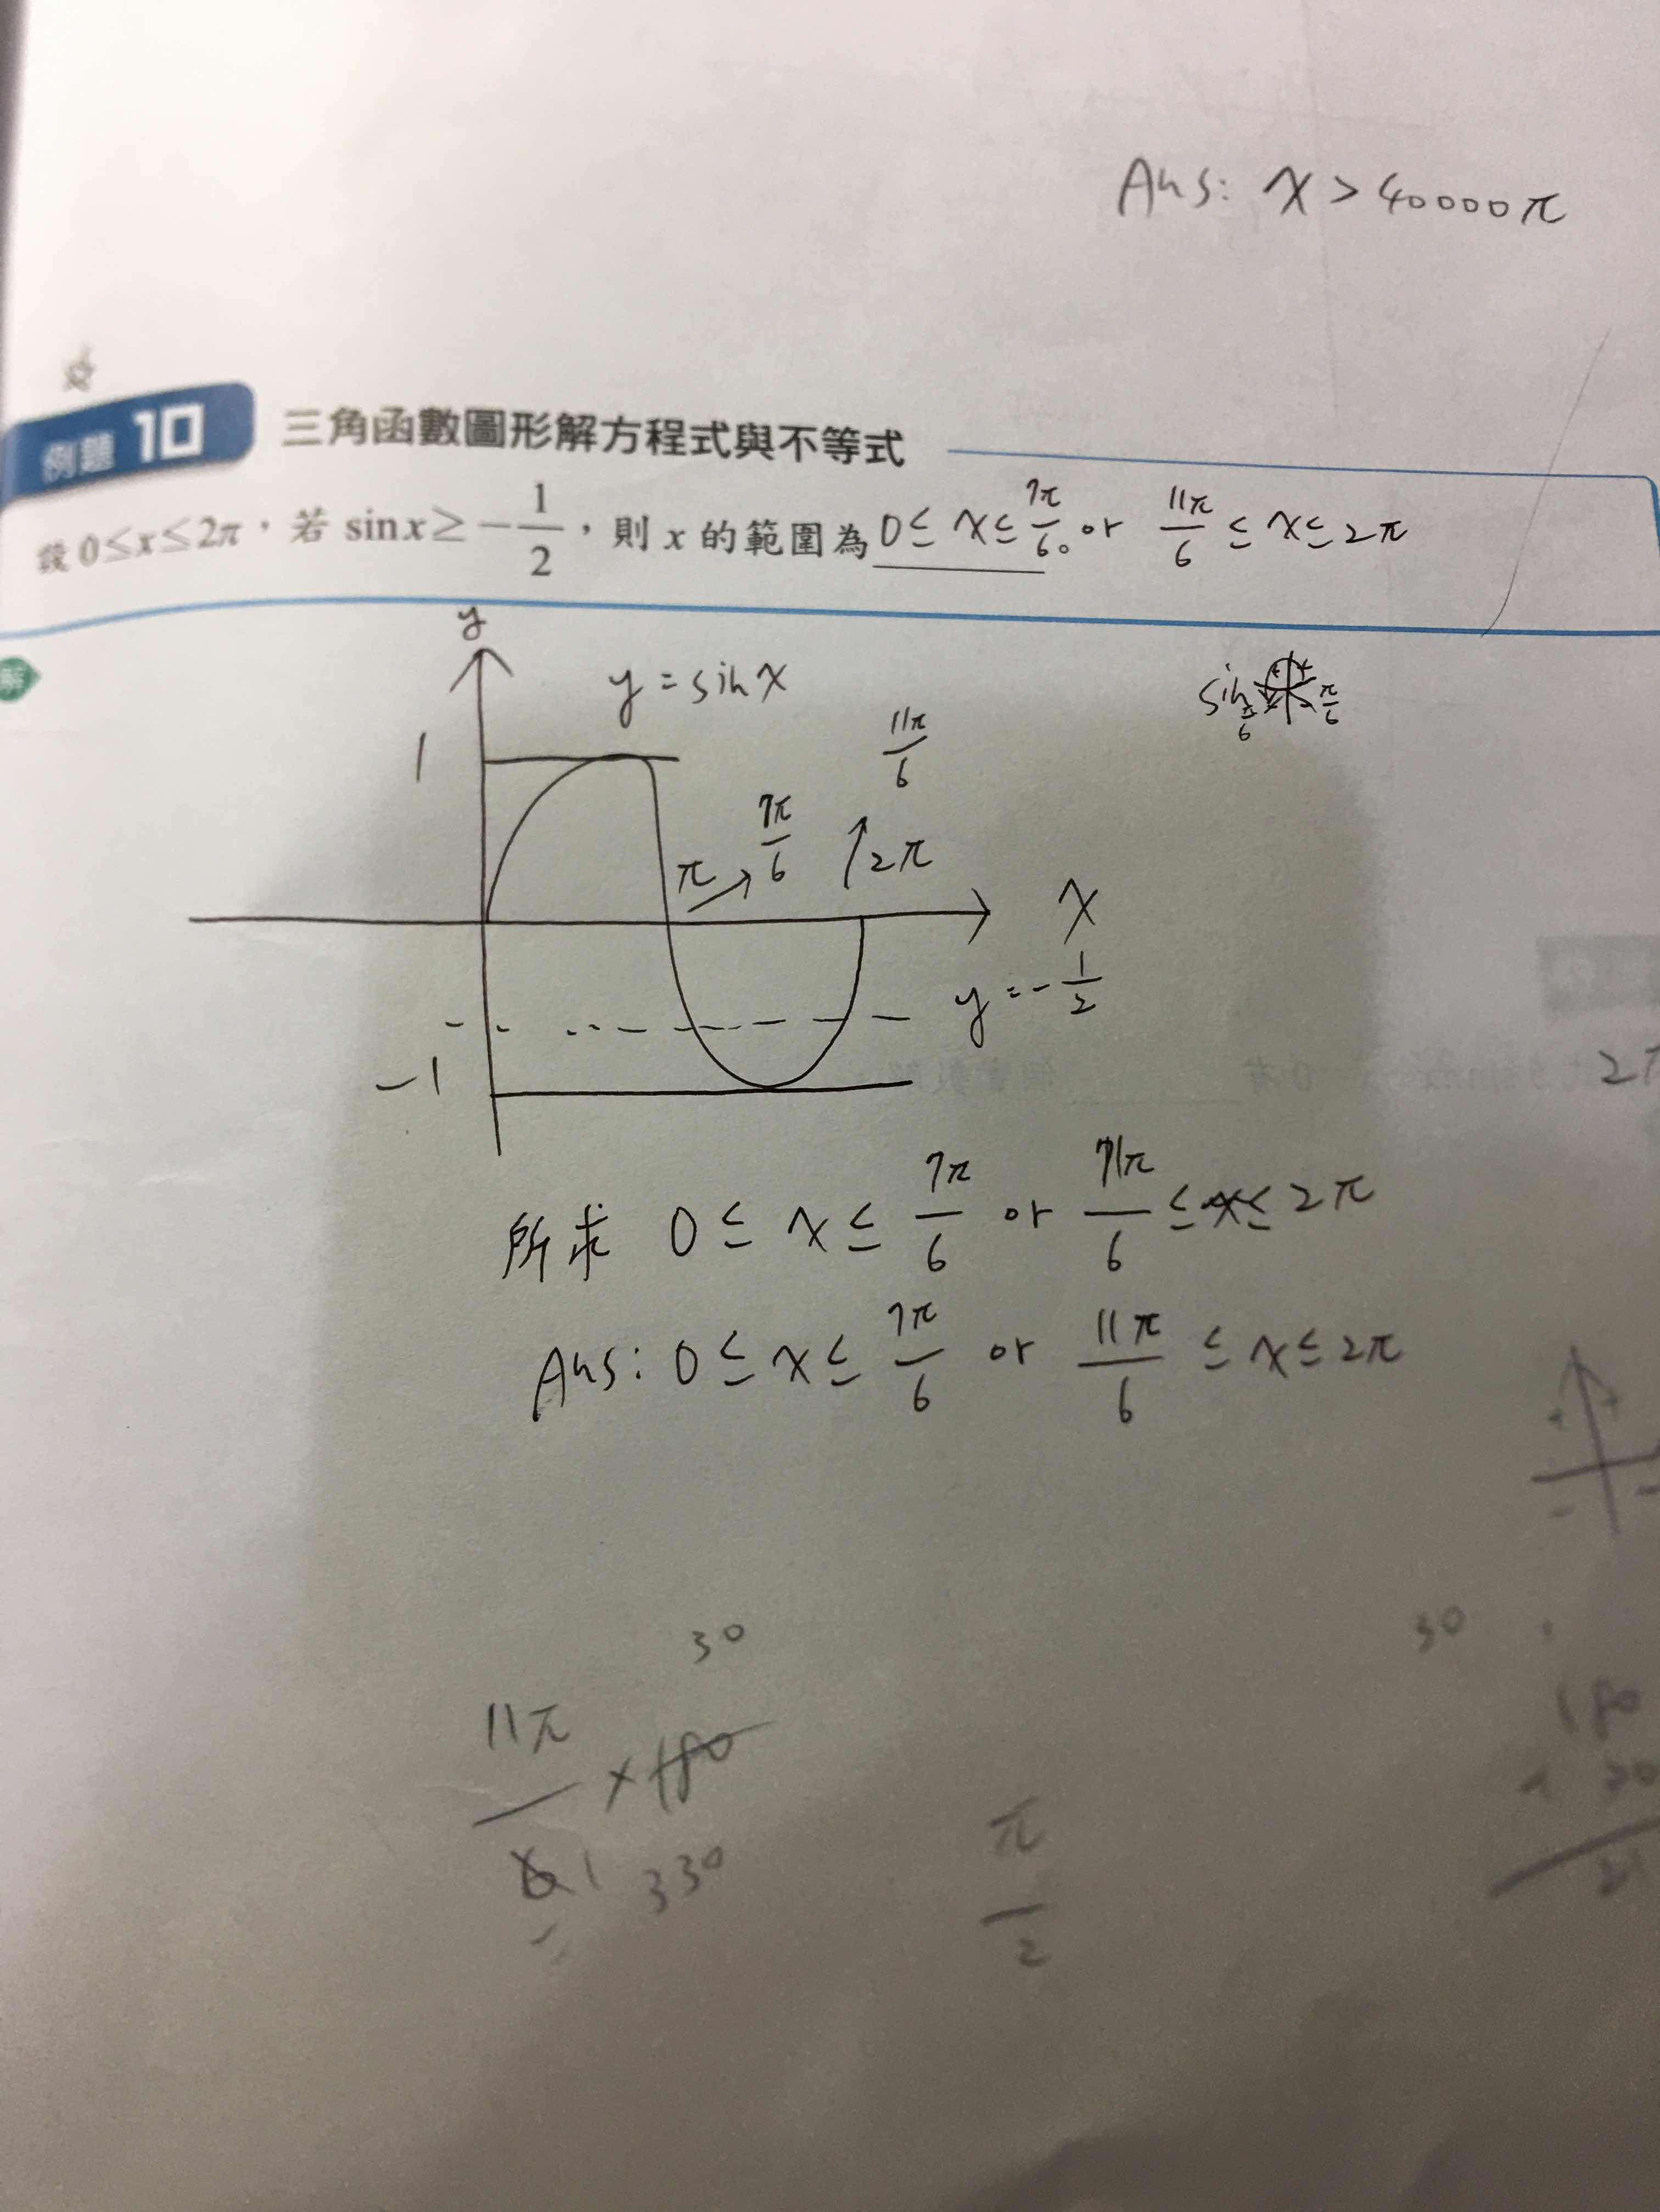 Ans: x > 40000π
例題 10 三角函數圖形解方程式與不等式
設 0≤x≤2π，若 sin x ≥ -1/2，則 x 的範圍為 0 ≤ x ≤ 7π/6。or 11π/6 ≤ x ≤ 2π
解
y
y = sin x
sin
π/6
π/6
1
11π/6
7π/6
π
2π
x
y = -1/2
-1
所求 0 ≤ x ≤ 7π/6 or 11π/6 ≤ x ≤ 2π
Ans: 0 ≤ x ≤ 7π/6 or 11π/6 ≤ x ≤ 2π
30
30
11π/6 × 180
1
330
π/2
180